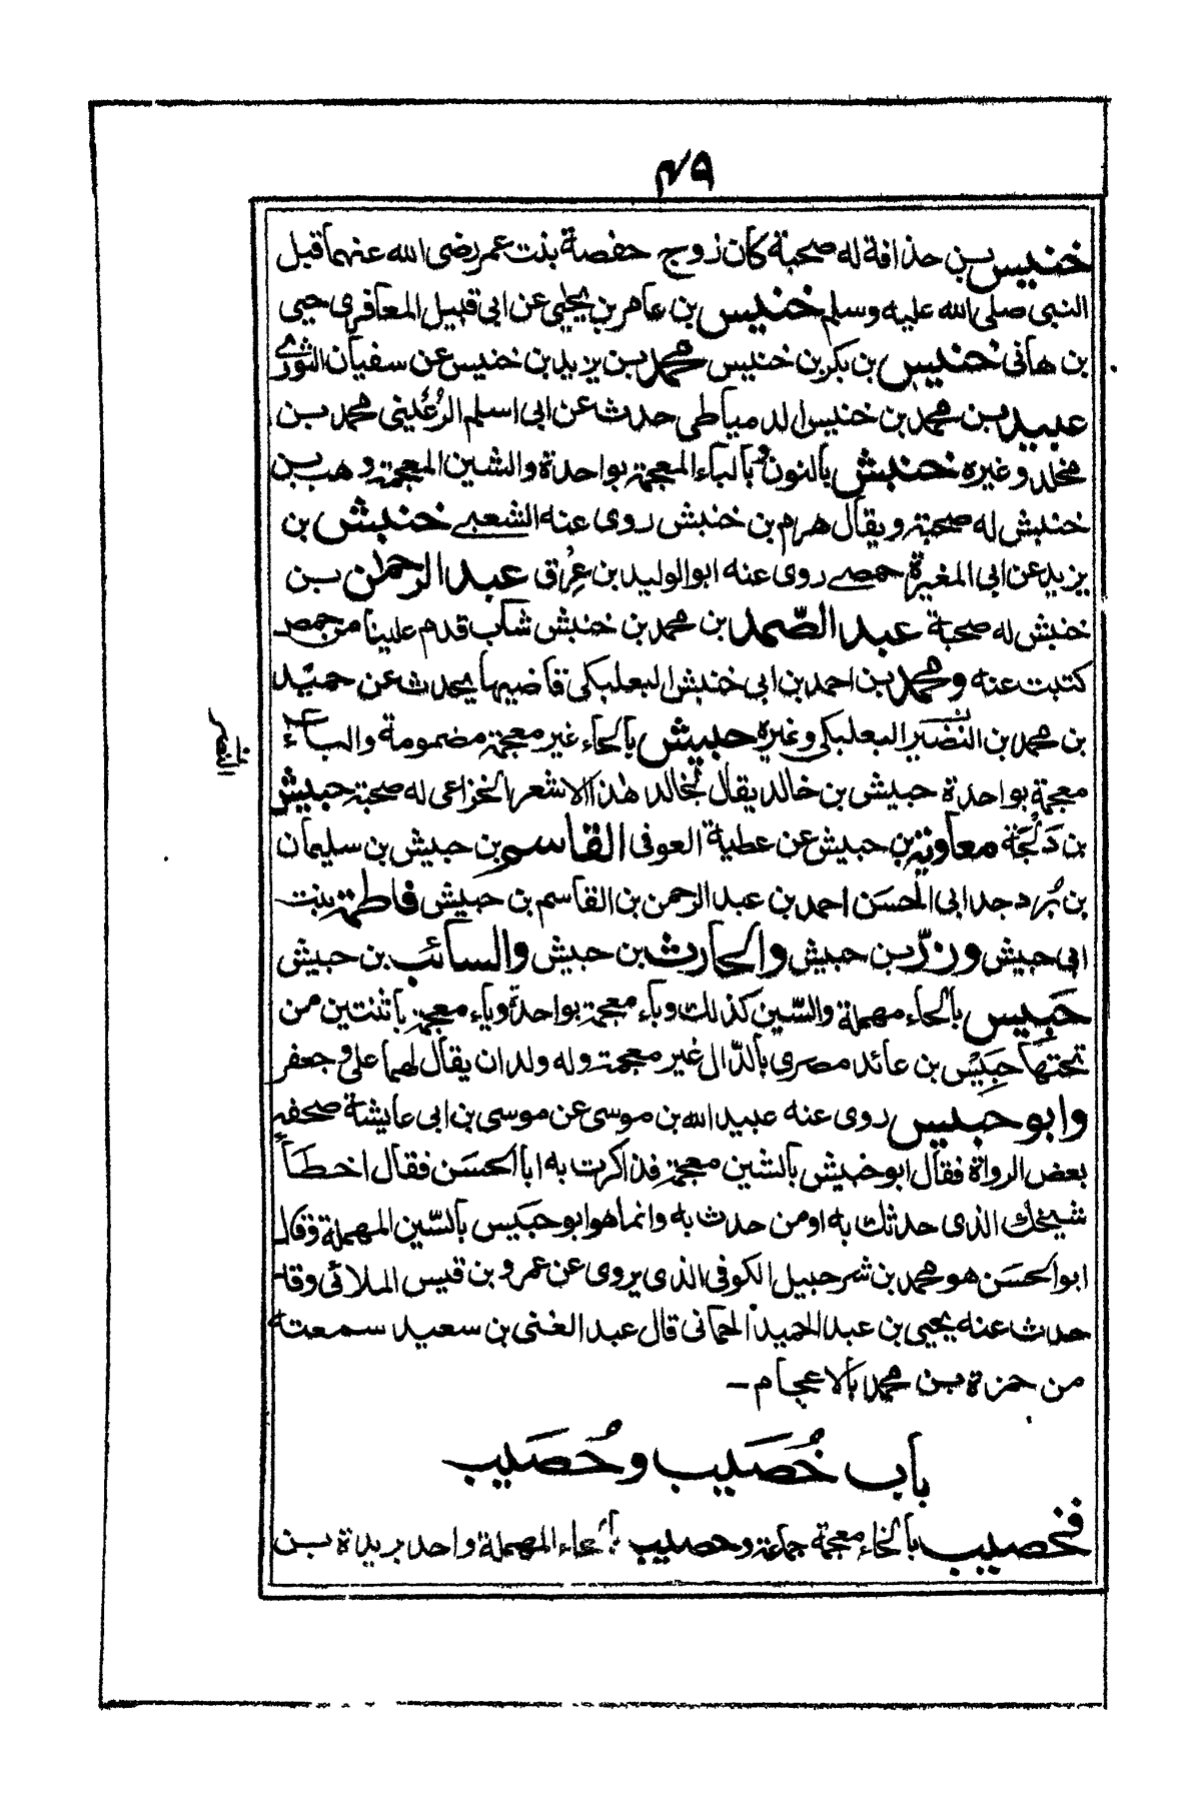 ٤٩
خنيس بن حذافة له صحبة كان زوج حفصة بنت عمر رضى الله عنهما قبل
النبى صلى الله عليه وسلم خنيس بن عامر بن يحيى عن ابى قبيل المعافرى حيى
بن هانى خنيس بن بكر بن خنيس محمد بن يزيد بن خنيس عن سفيان الثورى
عبيد بن محمد بن خنيس الدمياطى حدث عن ابى اسلم الرُعَينى محمد بن
مخلد وغيره خنبش بالنون وبالباء المعجمة بواحدة والشين المعجمة وهب بن
خنبش له صحبة ويقال هرم بن خنبش روى عنه الشعبى خنبش بن
يزيد عن ابى المغيرة حمصى روى عنه ابو الوليد بن عِرُق عبد الرحمٰن بن
خنبش له صحبة عبد الصّمد بن محمد بن خنبش شاب قدم علينا من حمص
كتبت عنه ومحمد بن احمد بن ابى خنبش البعلبكى قاضيها يحدث عن حميد
بن محمد بن النضير البعلبكى وغيره حبيش بالحاء غير معجمة مضمومة والباء
النصر
معجمة بواحدة حبيش بن خالد يقال لخالد هذا الاشعر الخزاعى له صحبة حبيش
بن دَلْجَة معاوية بن حبيش عن عطية العوفى القاسم بن حبيش بن سليمان
بن بُرد جد ابى الحسَن احمد بن عبد الرحمن بن القاسم بن حبيش فاطمة بنت
ابى حبيش وزرّ بن حبيش والحارث بن حبيش والسائب بن حبيش
حَبِيس بالحاء مهملة والسّين كذلك وباء معجمة بواحدة وياء معجمة باثنتين من
تحتها حَبِيْس بن عائد مصرى بالدّال غير معجمة وله ولدان يقال لهما على وجعفر
وابو حبيس روى عنه عبيد الله بن موسى عن موسى بن ابى عايشة صحفه
بعض الرواة فقال ابو خبيش بالشين معجمة فذاكرت به ابا الحسَن فقال اخطأ
شيخك الذى حدثك به او من حدث به وانما هو ابو حبَيس بالسّين المهملة وقال
ابو الحسَن هو محمد بن شرحبيل الكوفى الذى يروى عن عمرو بن قيس الملائى وقد
حدث عنه يحيى بن عبد الحميد الحمانى قال عبد الغنى بن سعيد سمعته
من حمزة بن محمد بالاعجام ـ
باب خُصَيب و حُصَيب
فخصيب بالخاء معجمة جماعة وحصيب بالحاء المهملة واحد بريدة بن